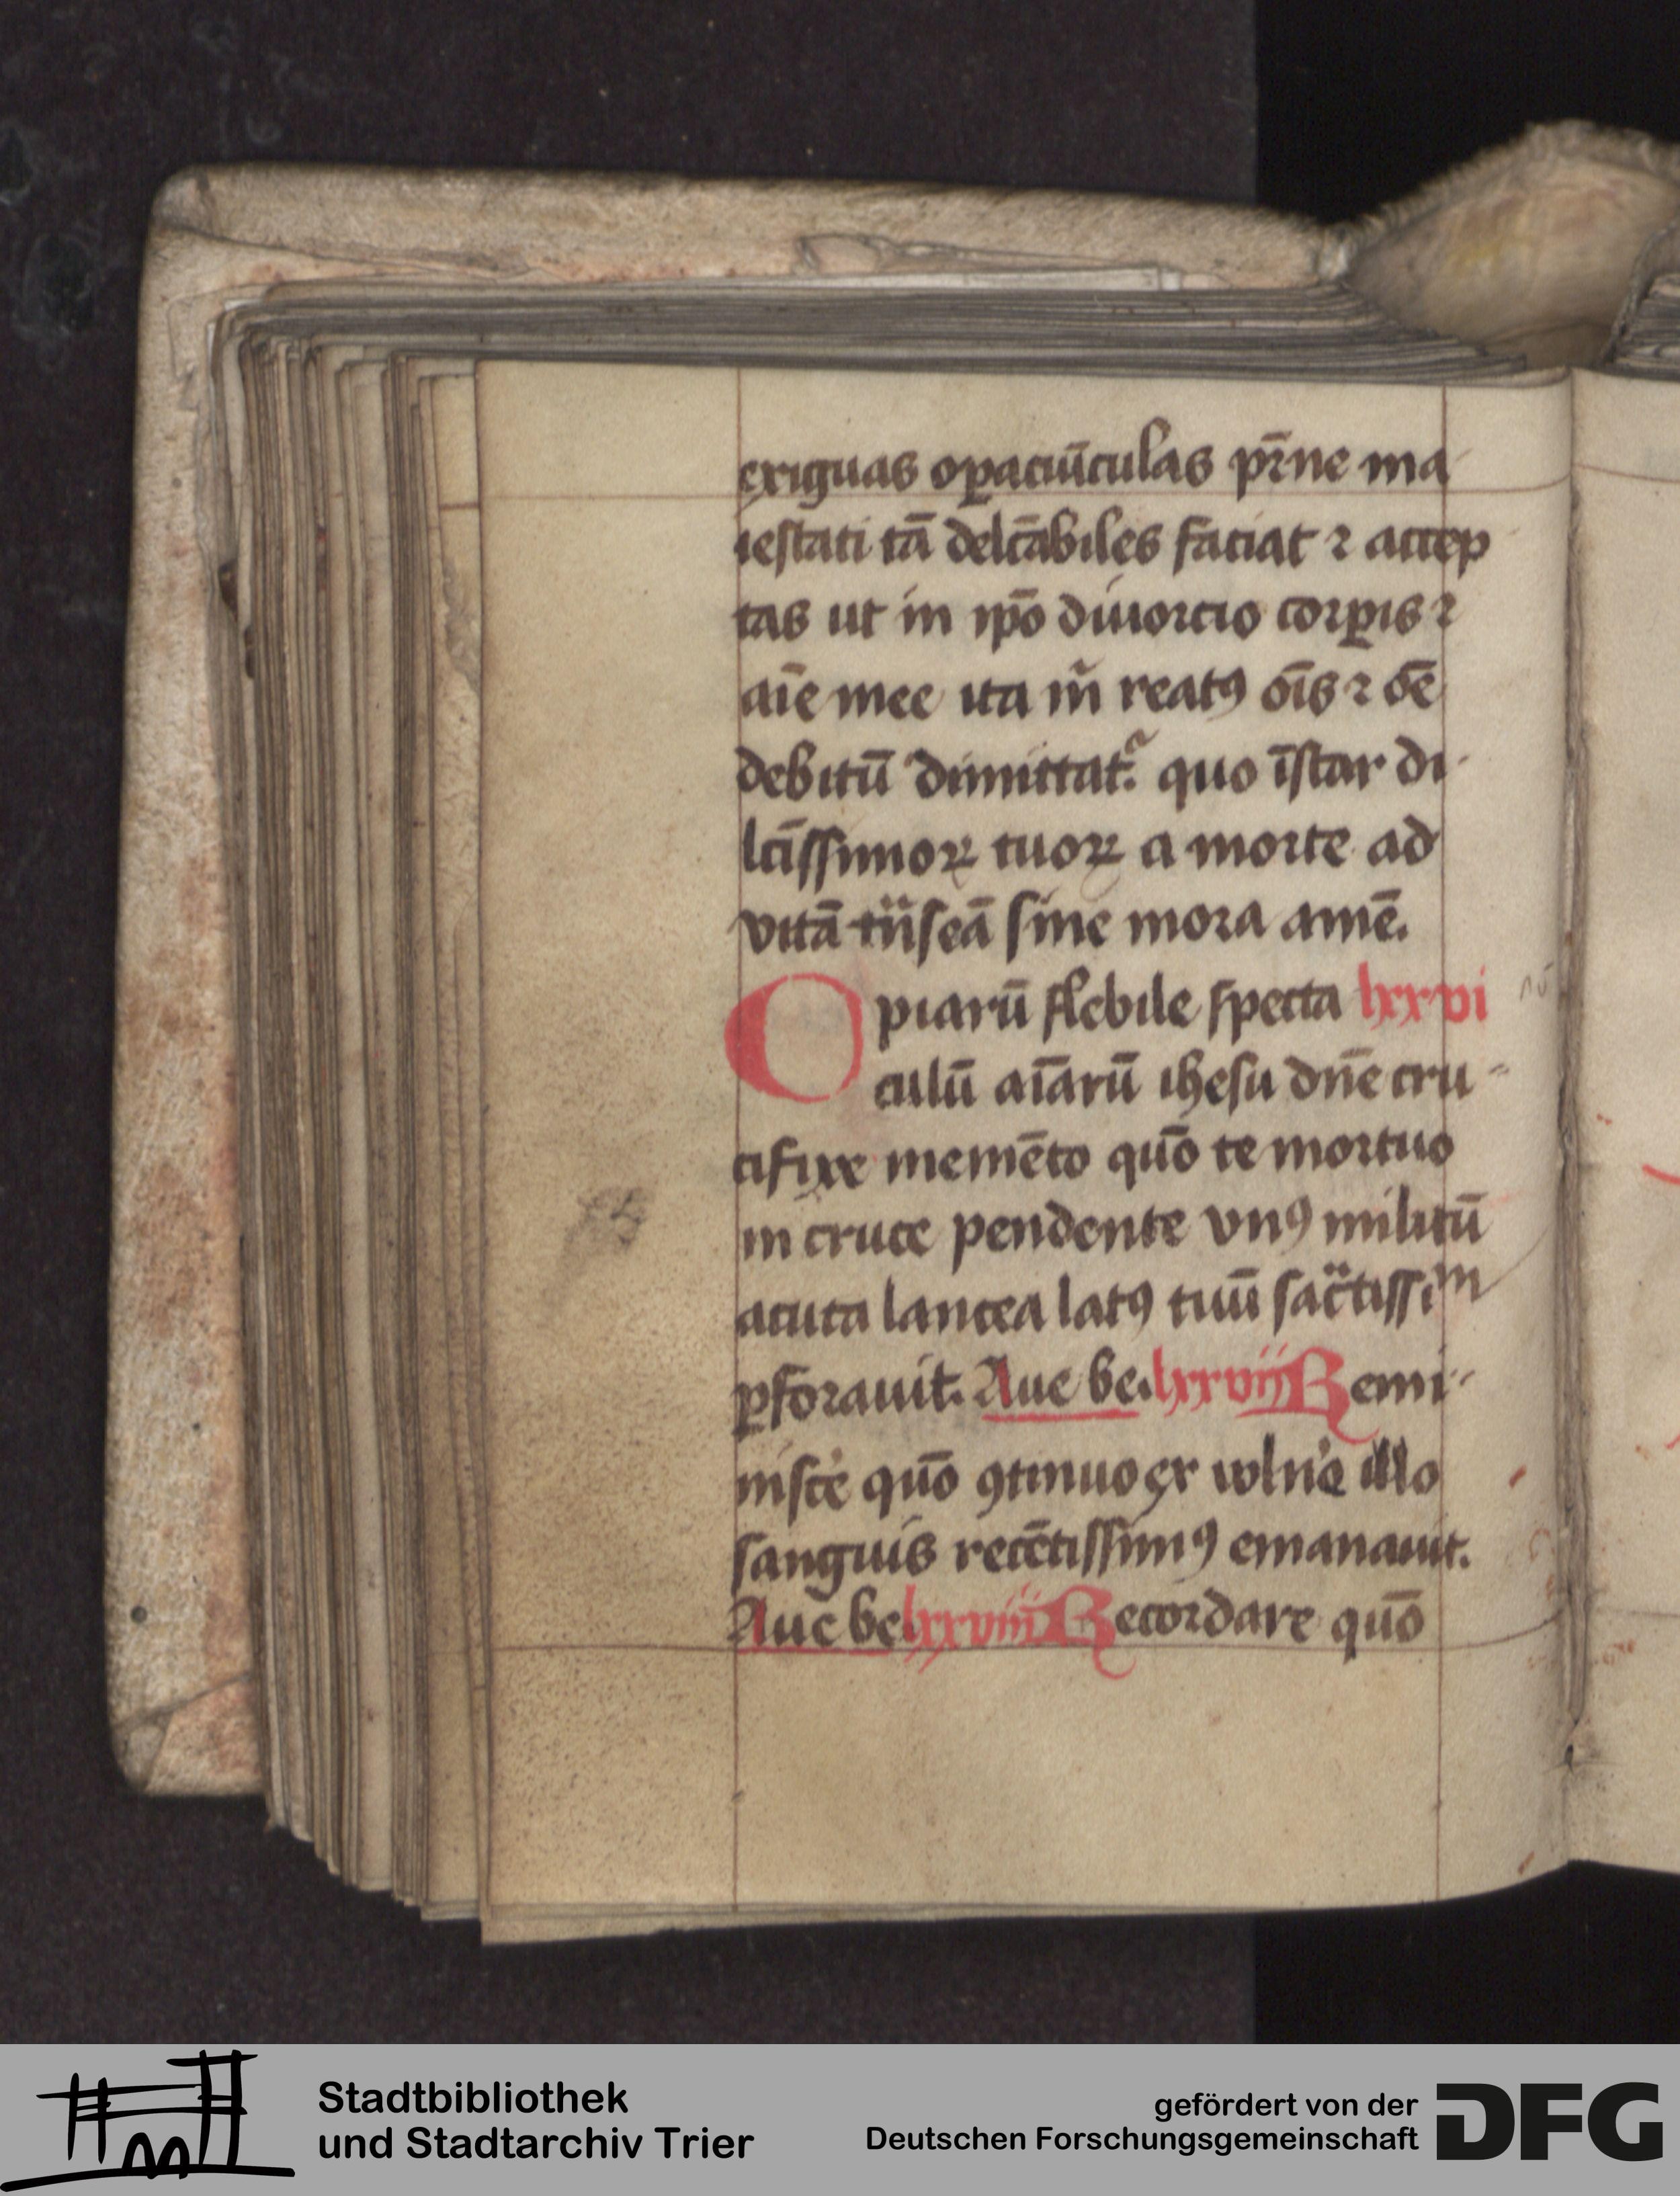 exiguas oꝑaciūculas pr̄ne ma
iestati tā delc̄abiles faciat ⁊ accep
tas ut in ip̄o diuorcio corꝑis ⁊
aīe mee ita m̄ reatꝯ oīs ⁊ oē
debitū dimittat᷑. quo īstar di
lc̄issimoꝝ tuoꝝ a morte ad
vitā tn̄seā sine mora amē.
O piarū flebile specta lxxvi
culū aīarū ihesu dn̄e cru-
cifixe memēto quō te mortuo
in cruce pendente vnꝯ militū
acuta lancea latꝯ tuū sac̄tissiᵐ
ꝑforauit. Aue be. lxxvij Remi-
nisc̄e quō ꝯtinuo ex vuln̄e illo
sanguis recētissimꝯ emanauit.
Aue be lxxviij Recordare quō
Stadtbibliothek
und Stadtarchiv Trier
gefördert von der
Deutschen Forschungsgemeinschaft
DFG